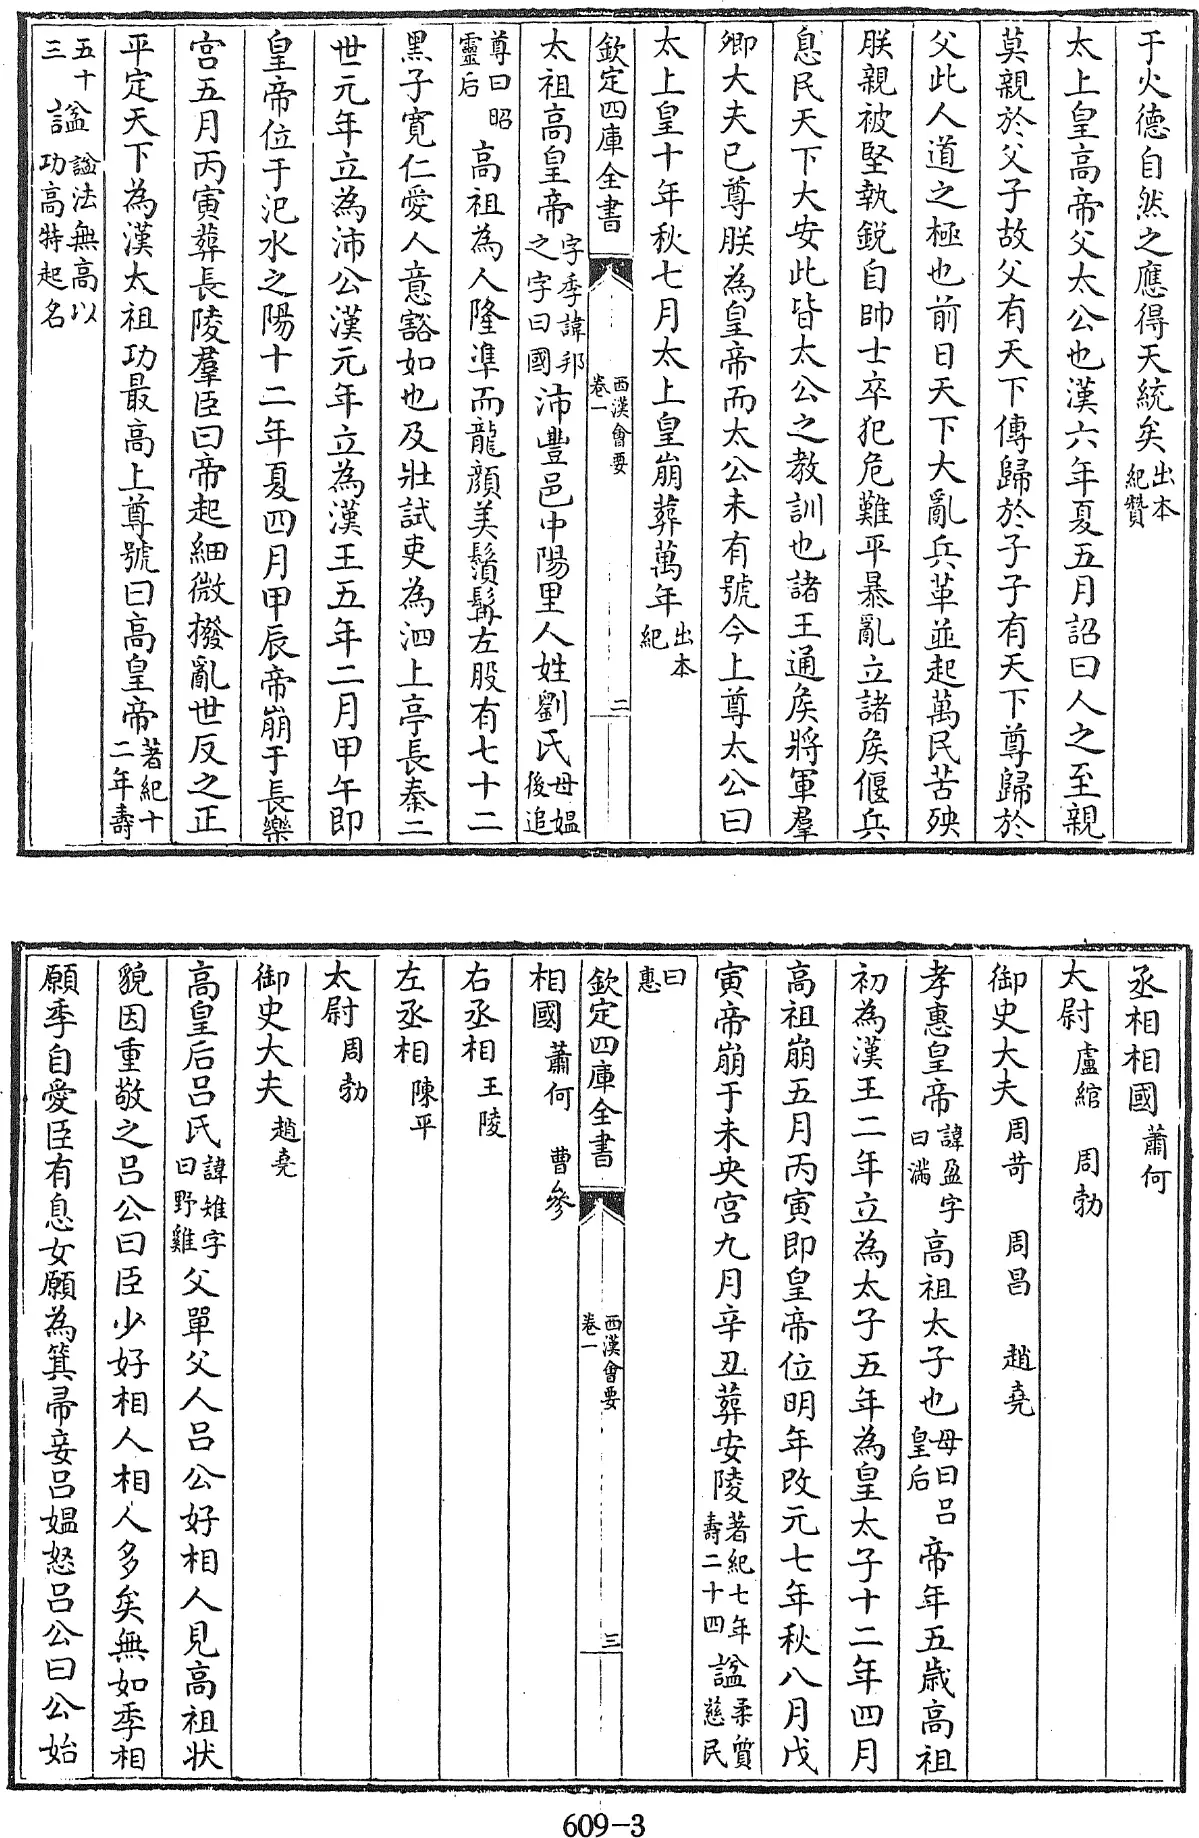 于火德自然之應得天統矣出本紀贊
太上皇高帝父太公也漢六年夏五月詔曰人之至親
莫親於父子故父有天下傳歸於子子有天下尊歸於
父此人道之極也前日天下大亂兵革並起萬民苦殃
朕親被堅執銳自帥士卒犯危難平暴亂立諸侯偃兵
息民天下大安此皆太公之教訓也諸王通侯將軍羣
卿大夫已尊朕為皇帝而太公未有號今上尊太公曰
太上皇十年秋七月太上皇崩葬萬年出本紀
欽定四庫全書 西漢會要卷一 二
太祖高皇帝字季諱邦之字曰國沛豐邑中陽里人姓劉氏母媼後追
尊曰昭靈后高祖為人隆準而龍顏美鬚髯左股有七十二
黑子寛仁愛人意豁如也及壯試吏為泗上亭長秦二
世元年立為沛公漢元年立為漢王五年二月甲午即
皇帝位于汜水之陽十二年夏四月甲辰帝崩于長樂
宮五月丙寅葬長陵羣臣曰帝起細微撥亂世反之正
平定天下為漢太祖功最高上尊號曰高皇帝著紀十二年壽
五十三諡諡法無高以功高特起名
丞相相國蕭何
太尉盧綰 周勃
御史大夫周苛 周昌 趙堯
孝惠皇帝諱盈字曰滿高祖太子也母曰吕皇后帝年五歲高祖
初為漢王二年立為太子五年為皇太子十二年四月
高祖崩五月丙寅即皇帝位明年改元七年秋八月戊
寅帝崩于未央宫九月辛丑葬安陵著紀七年壽二十四諡柔質慈民
曰惠
欽定四庫全書 西漢會要卷一 三
相國蕭何 曹參
右丞相王陵
左丞相陳平
太尉周勃
御史大夫趙堯
高皇后吕氏諱雉字曰野雞父單父人吕公好相人見高祖狀
貌因重敬之吕公曰臣少好相人相人多矣無如季相
願季自愛臣有息女願為箕帚妾吕媼怒吕公曰公始
609-3